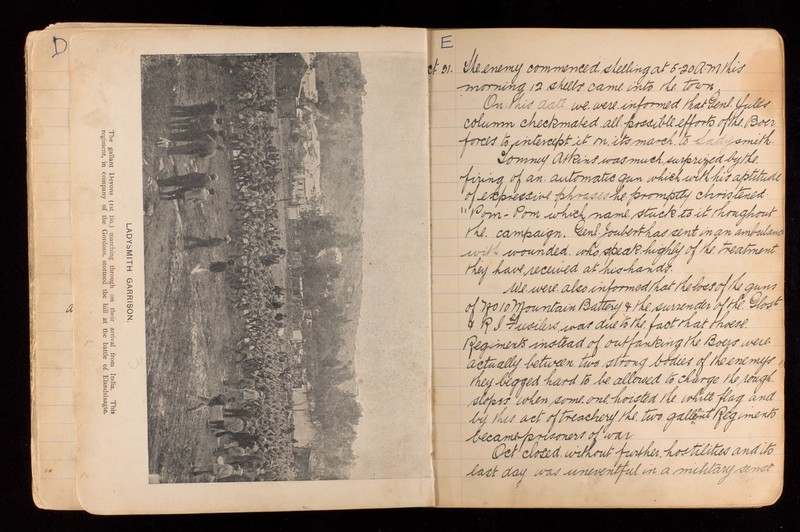 D
The gallant Devons (1st Bn.) marching through on their arrival from India. This
regiment, in company of the Gordons, stormed the hill at the battle of Elandslaagte.
LADYSMITH GARRISON.
E
ct 31. The enemy commenced shelling at 5-20 A.M this
morning 12 shells came into the town,
On this date we were informed that Genl. Yules
column checkmated all possible efforts of the Boer
forces to intercept it on its march to Ladysmith.
Tommy Atkins was much surprized by the
firing of an automatic gun which with his aptitude
of expressive phrases he promptly christened
"Pom-Pom which name stuck to it thoughout
the campaign. Genl. Joubert has sent in an ambulanc
with wounded who speak highly of the treatment
they have received at his hands.
We were also informed that the loss of the guns
of No 10 Mountain Battery & the surrender of the Glost
& R I Fusilers was due to the fact that these
Regiments instead of outflanking the Boers were
actually between two strong bodies of the enemy
they begged hard to be allowed to charge the rough
slopes when some one hoisted the white flag and
by this act of treachery the two gallant Regiments
became prisoners of war
Oct closed without further hostilities and its
last day was uneventful in a military sense.